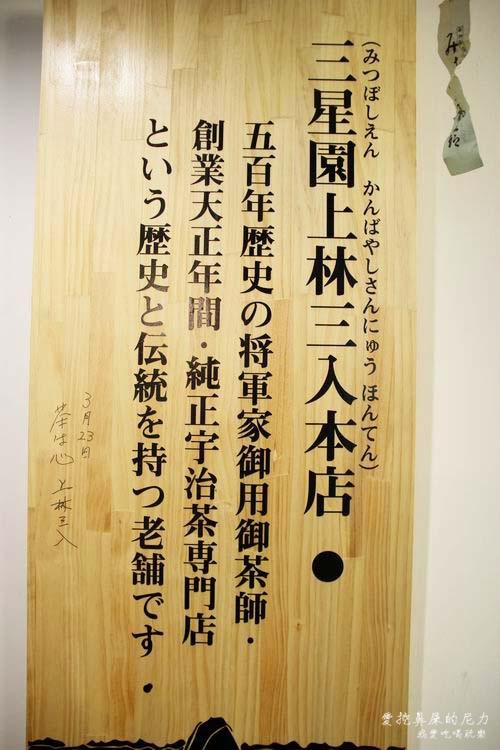 (みつぼしえん かんばやしさんにゅう ほんてん)
三星園上林三入本店●
五百年歴史の将軍家御用御茶師・
創業天正年間・純正宇治茶専門店
という歴史と伝統を持つ老舗です・
3月23日
茶は心 上林三入
愛挖鼻屎的尼力
我愛吃喝玩樂